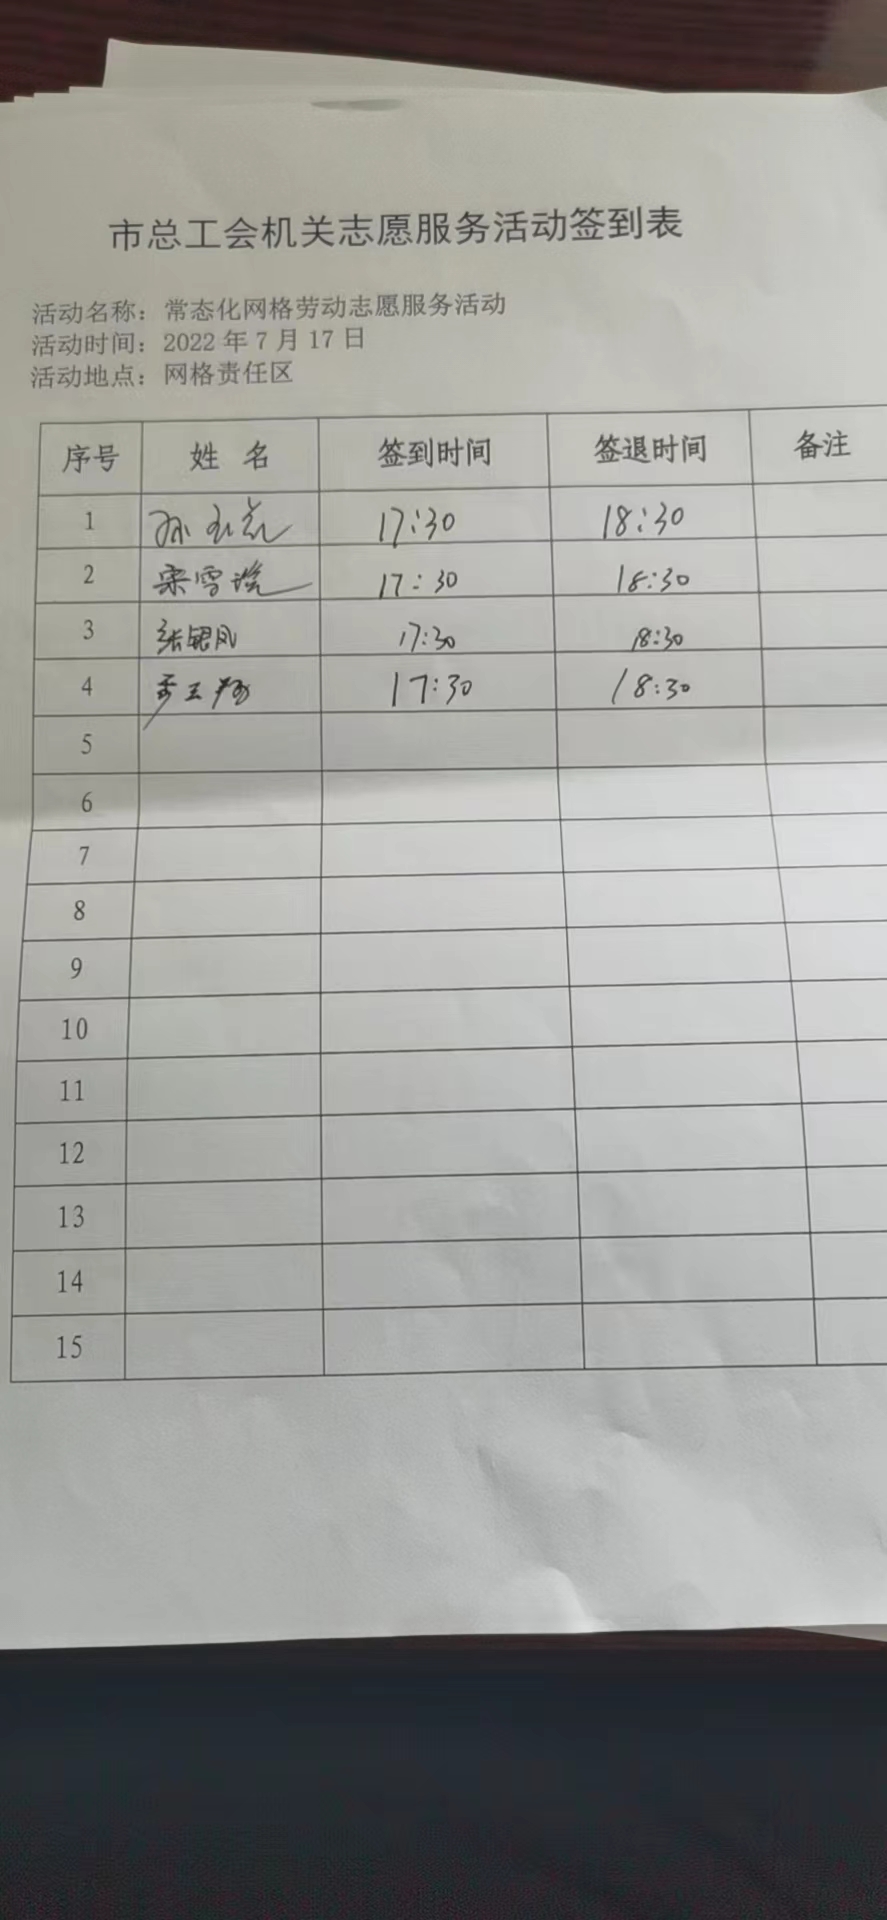 市总工会机关志愿服务活动签到表
活动名称：常态化网格劳动志愿服务活动
活动时间：2022 年 7 月 17 日
活动地点：网格责任区
序号 姓 名 签到时间 签退时间 备注
1 孙 17:30 18:30
2 宋雪 17:30 18:30
3 张银凤 17:30 18:30
4 17:30 18:30
5
6
7
8
9
10
11
12
13
14
15